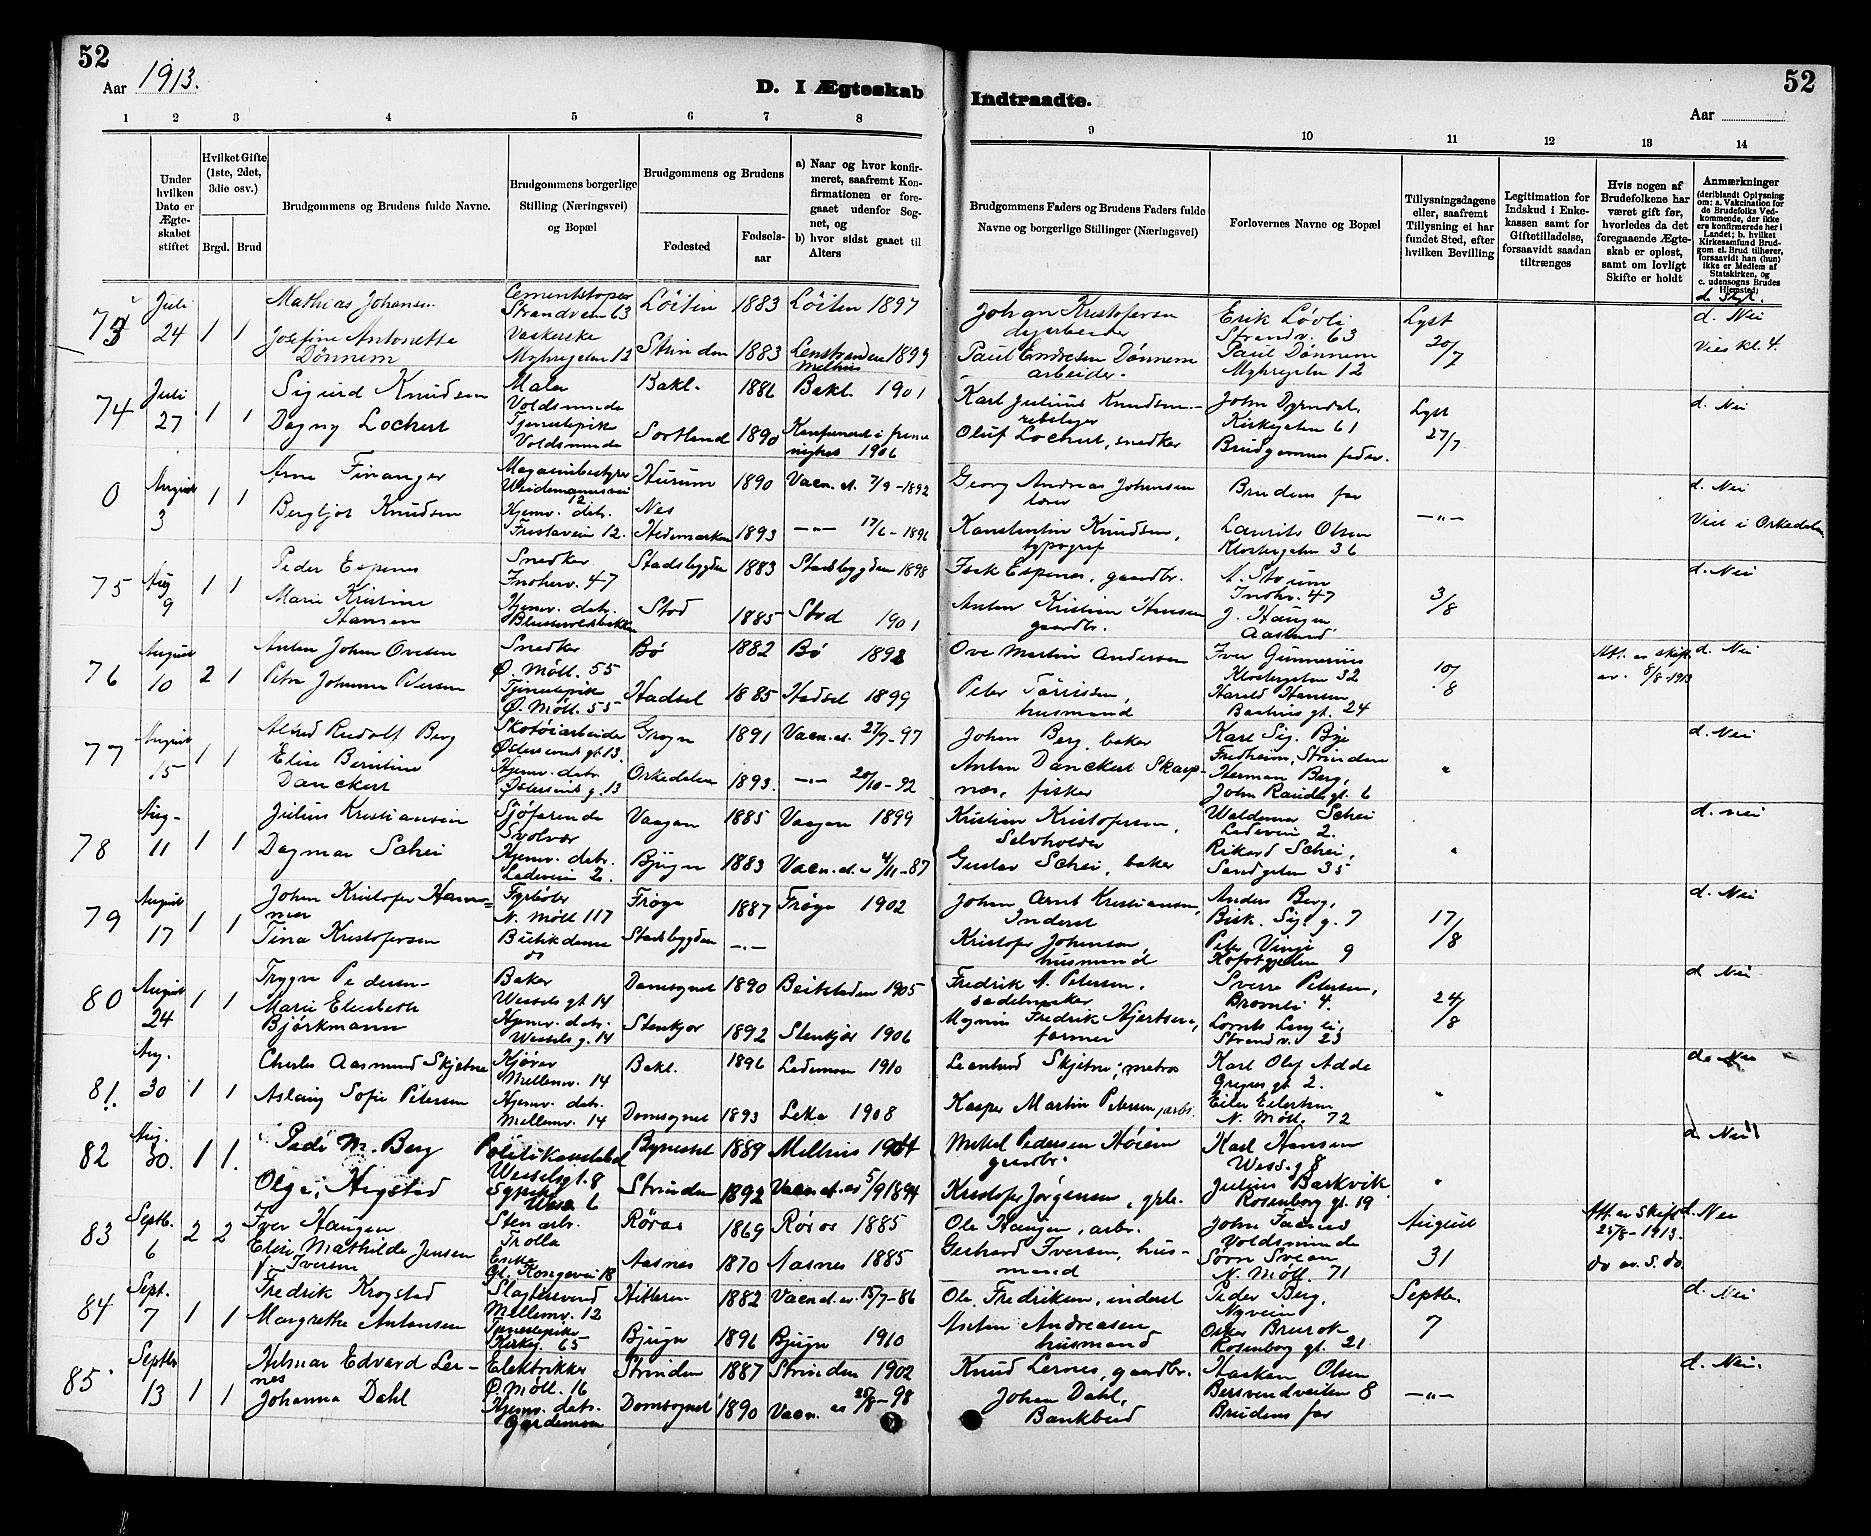 52
Aar 1913.
D. I Ægteskab Indtraadte.
52
Aar
1 2 3 4 5 6 7 8 9 10 11 12 13 14
Under hvilken Dato er Ægteskabet stiftet
Hvilket Gifte (1ste, 2det, 3die osv.)
Brgd. Brud
Brudgommens og Brudens fulde Navne.
Brudgommens borgerlige Stilling (Næringsvei) og Bopæl
Brudgommens og Brudens
Fødested
Fødsels-aar
a) Naar og hvor konfirmeret, saafremt Konfirmationen er foregaaet udenfor Sognet, og
b) hvor sidst gaaet til Alters
Brudgommens Faders og Brudens Faders fulde Navne og borgerlige Stillinger (Næringsvei)
Forlovernes Navne og Bopæl
Tillysningsdagene eller, saafremt Tillysning ei har fundet Sted, efter hvilken Bevilling
Legitimation for Indskud i Enkekassen samt for Giftetilladelse, forsaavidt saadan tiltrænges
Hvis nogen af Brudefolkene har været gift før, hvorledes da det foregaaende Ægteskab er opløst, samt om lovligt Skifte er holdt
Anmærkninger (deriblandt Oplysning om: a. Vakcination for de Brudefolks Vedkommende, der ikke ere konfirmerede her i Landet; b. hvilket Kirkesamfund Brudgom el. Brud tilhører, forsaavidt han (hun) ikke er Medlem af Statskirken, og c. udensogns Brudes Hjemsted)
73 Juli 24 1 1 Mathias Johansen Cementstøper Strandvein 63 Löiten 1883 Löiten 1897 Johan Kristofersen dagarbeider Erik Løvli Strandv. 63 Lyst 20/7 d. Nei
Josefine Antonette Dønnem Vaskerske Myhregaten 12 Strinden 1883 Lenstranden 1899 Melhus Paul Endresen Dønnem arbeider. Paul Dønnem Myhregaten 12 Vies kl. 4.
74 Juli 27 1 1 Sigurd Knudsen Maler Voldsminde Bakl. 1886 Bakl. 1901 Karl Julius Knudsen rebslager John Dyrndal Kirkegaten 61 Lyst 27/7 d. Nei
Dagny Lochert Tjenestepike Voldsminde Sortland 1890 1906 Oluf Lochert, snedker Brudgommens fader.
0 August 3 1 1 Arne Finanger Magasinbestyrer 12 Hurum 1890 Vacn. at. 7/9-1892 Georg Andreas Johansen lærer Brudens far -"- d. Nei
Bergljot Knudsen Hjemv. datr. Frostavein 12. Nes Hedemarken 1893 -"- 17/6-1896 Konstantin Knudsen, typograf Laurits Olsen Klostergaten 36 Viet i Orkedalen
75 Aug 9 1 1 Peder Espenes Snedker Innherv. 47 Stadsbygden 1883 Stadsbygden 1898 Espenes, gaardbr. A. Storum Innhv. 47 3/8 d. Nei
Marie Kristine Hansen Hjemv. datr. Stod 1885 Stod 1901 Anton Kristian Hansen gaardbr. J. Haugen Aaslund
76 August 10 2 1 Anton Johan Ovesen Snedker Ø. Möll. 55 Bø 1882 Bø 1898 Ove Martin Andersen Iver Gunnerius Klostergaten 32 10/8 Att. av skift. av. 8/8-1913 d. Nei
Petra Johanna Petersen Tjenestepike Ø. Möll. 55 Hadsel 1885 Hadsel 1899 Peter Tørrissen, husmand Harald Hansen, Bakhus gt. 24
77 August 15 1 1 Alfred Rudolf Berg Skotøiarbeider Østersunds gt. 13. 1891 Vacn. at. 27/9-97 Johan Berg, baker Karl Sig. Bye Fredheim, Strinden " d. Nei
Elise Berntine Danckert Hjemv. datr. Østersunds g. 13 Orkedalen 1893. -"- 20/10-92 Anton Danckert Skarpnæs, fisker Herman Berg, John Raudes gt. 6
78 Aug. 11 1 1 Julius Kristiansen Sjøfarende Svolvær Vaagan 1885 Vaagan 1899 Kristian Kristofersen, Selvholder Waldemar Schei Ladevein 2. " d. nei
Dagmar Schei Hjemv. datr. Ladevein 2. Bjugn 1883 Vacn. at. 4/11-87 Gustav Schei, baker Rikard Schei, Sandgaten 35
79 August 17 1 1 Johan Kristofer Hammer Fyrbøter N. Möll 117 Frøya 1887 Frøya 1902 Johan Arnt Kristiansen, Inderst Anders Berg, Bisk. Sig. g. 7 17/8 d. Nei
Tina Kristofersen Butikdame do Stadsbygden -"- Kristofer Johansen, husmand Peter Vinje 9
80 August 24 1 1 Trygve Pedersen Baker Wessels gt. 14 Domsognet 1890 Beitstaden 1905 Fredrik A. Petersen, sadelmaker Sverre Petersen, Bromli 4. 24/8 d. Nei
Marie Elisabeth Bjørkmann Hjemv. datr. Wessels g. 14 Stenkjer 1892 Stenkjer 1906 Magnus Fredrik former Strandv. 23
81. Aug. 30 1 1 Charles Aasmund Skjetne Kjører Mellemv. 14 Bakl. 1896 Lademoen 1910 Leonhard Skjetne, matros Karl Olaf Adde Gregus gt. 2. " d. Nei
Aslaug Sofie Petersen Hjemv. datr. Mellemv. 14 Domsognet 1893 Leka 1908 Kasper Martin Petersen, arb. Eiler Eilertsen N. Möll. 72
82 Aug. 30. 1 1. Peder M. Berg Politikonstabel Wesselsgt. 8 Bynesset 1889 Melhus 1904 Mikal Pedersen Høiem gaardbr. Karl Hansen Wess. g 8 " d. Nei
Olga Hegstad Sypike Strinden 1892 Vacn. at. av 5/9 1894 Kristofer Jørgensen, Julius Barkvik Rosenborg gt. 19
83 Septb. 6 2 2 Iver Haugen Sten arb. Trolla Røros 1869 Røros 1885 Ole Haugen, arb. John Voldsminde August 31 Att. av Skift. 25/8-1913. d. Nei
Elise Mathilde Jensen f. Iversen Enke Gl. Kongevei 18 Aasnes 1870 Aasnes 1885 Gerhard Iversen, husmand Sørn Svean N. Möll. 71 do av. S. do.
84 Sept. 7 1 1 Fredrik Krogstad Slagtersvend Mellemv. 12 Hitteren 1882 Vacn. at. av. 15/7-86 Ole Fredriksen, inderst Peder Berg, Nyveien Septbr. 7 d. Nei
Margrethe Antonsen Tjenestepike Kirkeg. 65 Bjugn 1896 Bjugn 1910 Anton Andreasen husmand Oskar Brurok Rosenborg gt. 21
85 Septbr 13 1 1 Hilmar Edvard Lernes Elektrikker Ø. Möll. 16 Strinden 1887 Strinden 1902 Knud Lernes, gaardbr. Haakon Olsen Bersvendveiten 8 -"- d. Nei.
Johanna Dahl Hjemv. datr. Gardemoen Domsognet 1890 Vacn. av 25/8-98 Johan Dahl, Bankbud Brudens far